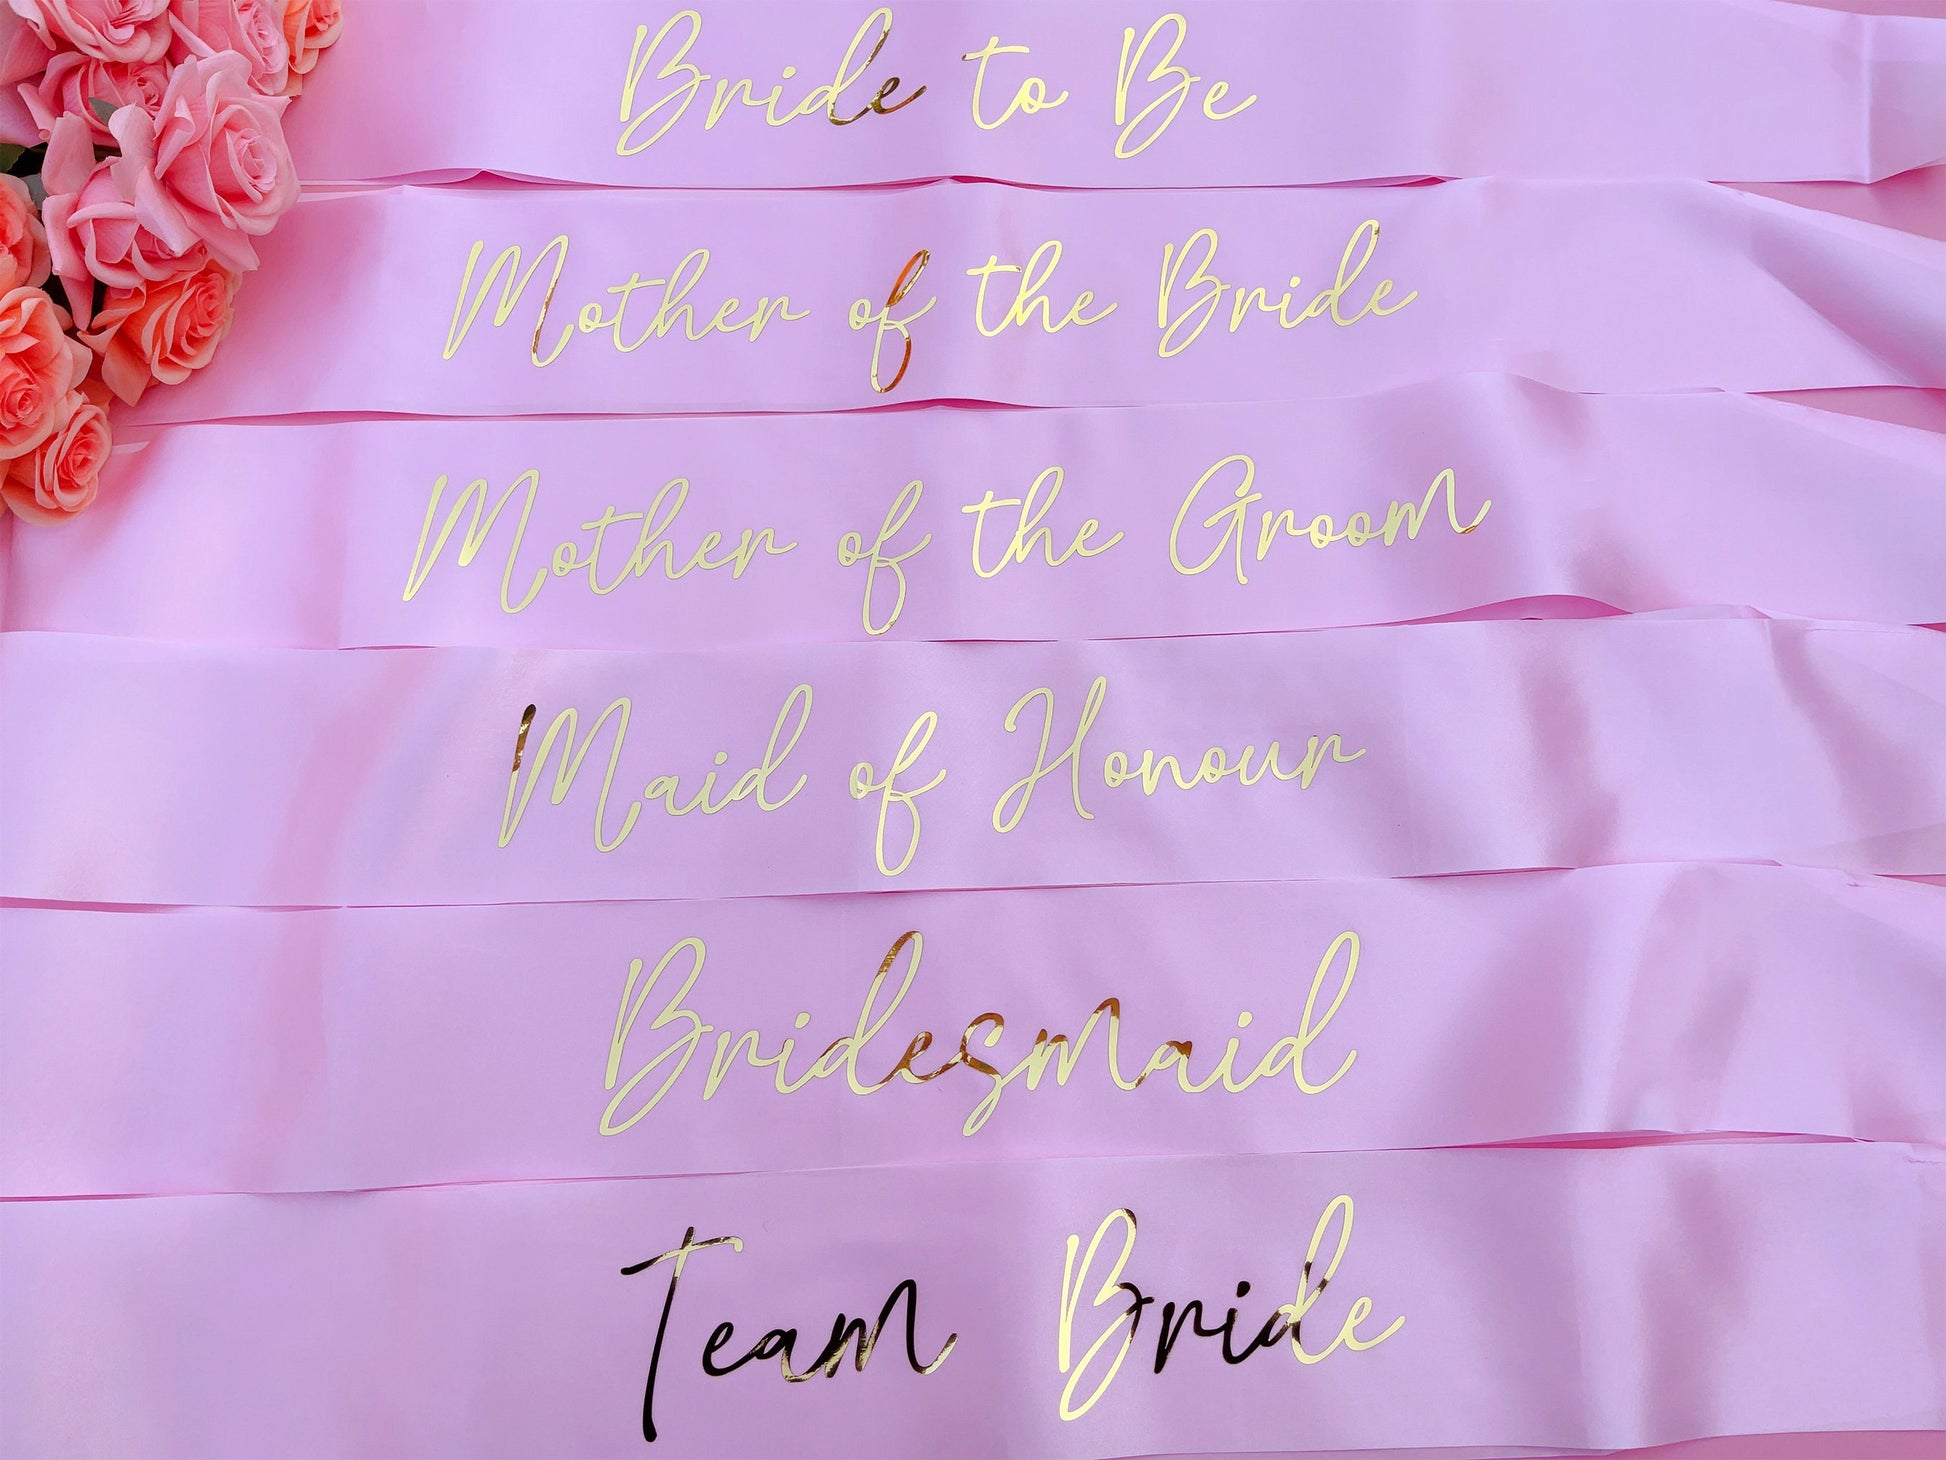 Bride to Be
Mother of the Bride
Mother of the Groom
Maid of Honour
Bridesmaid
Team Bride